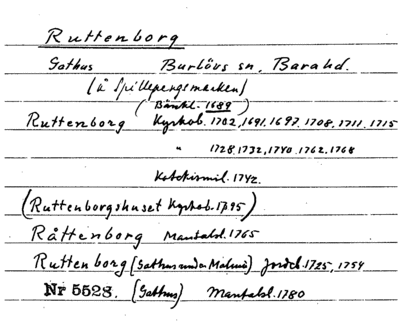 Ruttenborg
Gathus Burlövs sn, Barahd.
(å Spillepengsmarken)
(Bänkl. 1689)
Ruttenborg Kyrkob. 1702, 1691, 1697, 1708, 1711, 1715
" 1728, 1732, 1740, 1762, 1768
Katekismil. 1742.
(Ruttenborgshuset Kyrkob. 1795)
Råttenborg Mantalsl. 1765
Ruttenborg (Gathus under Malmö) Jordeb. 1725, 1754
Nr 5523. (Gathus) Mantalsl. 1780